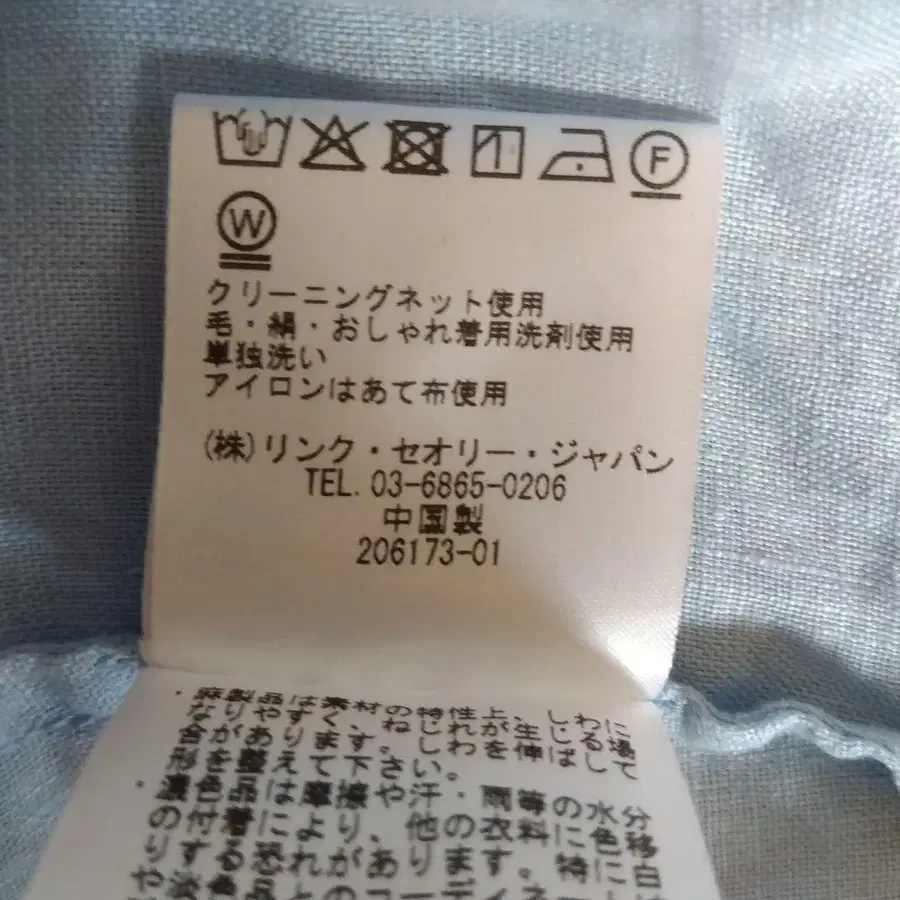 F
W
クリーニングネット使用
毛・絹・おしゃれ着用洗剤使用
単独洗い
アイロンはあて布使用
(株)リンク・セオリー・ジャパン
TEL. 03-6865-0206
中国製
206173-01
・麻製品は素材の特性上、しわに
なりやすく、ねじれが生じる場
合があります。しわを伸ばして
形を整えて下さい。
・濃色品は摩擦や汗・雨等の水分
の付着により、他の衣料に色移
りする恐れがあります。特に白
や淡色品とのコーディネー